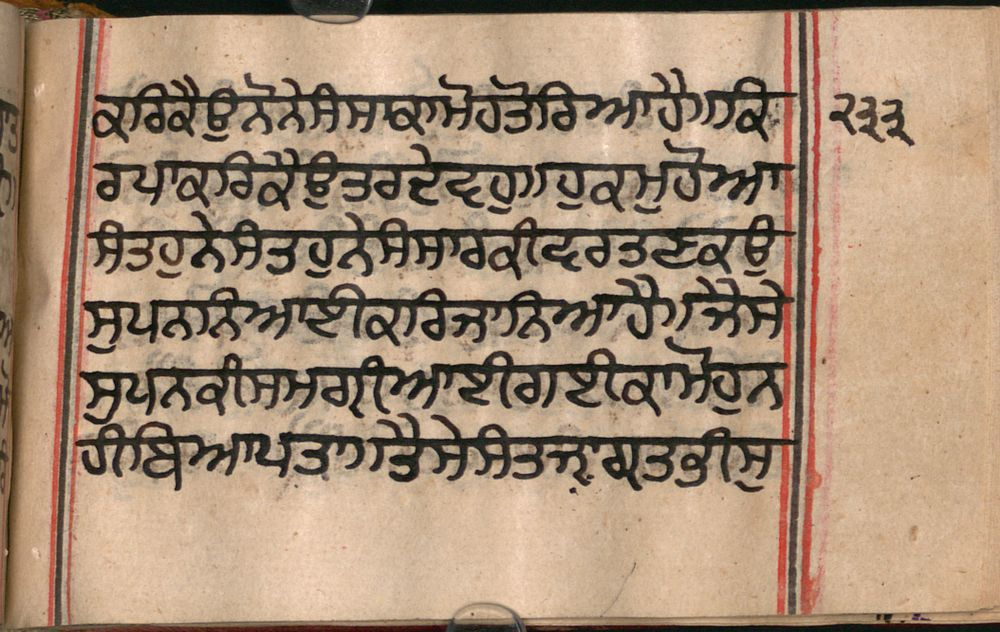 ਕਰਿਕੈਉਨੋਨੇਸੰਸਾਕਾਮੋਹਤੋਰਿਆਹੈ॥ਕਿ
ਰਪਾਕਰਿਕੈਉਤਰਦੇਵਹੁ॥ਹੁਕਮੁਹੋਆ
ਸੰਤਹੁਨੇਸੰਤਹੁਨੇਸੰਸਾਰਕੀਵਰਤਣਕਉ
ਸੁਪਨਾਨਿਆਈਕਰਿਜਾਨਿਆਹੈ॥ਜੈਸੇ
ਸੁਪਨਕੀਸਮਗ੍ਰੀਆਈਗਈਕਾਮੋਹੁਨ
ਹੀਬਿਆਪਤਾ॥ਤੈਸੇਸੰਤਜਾਗ੍ਰਤਭੀਸੁ
੨੩੩